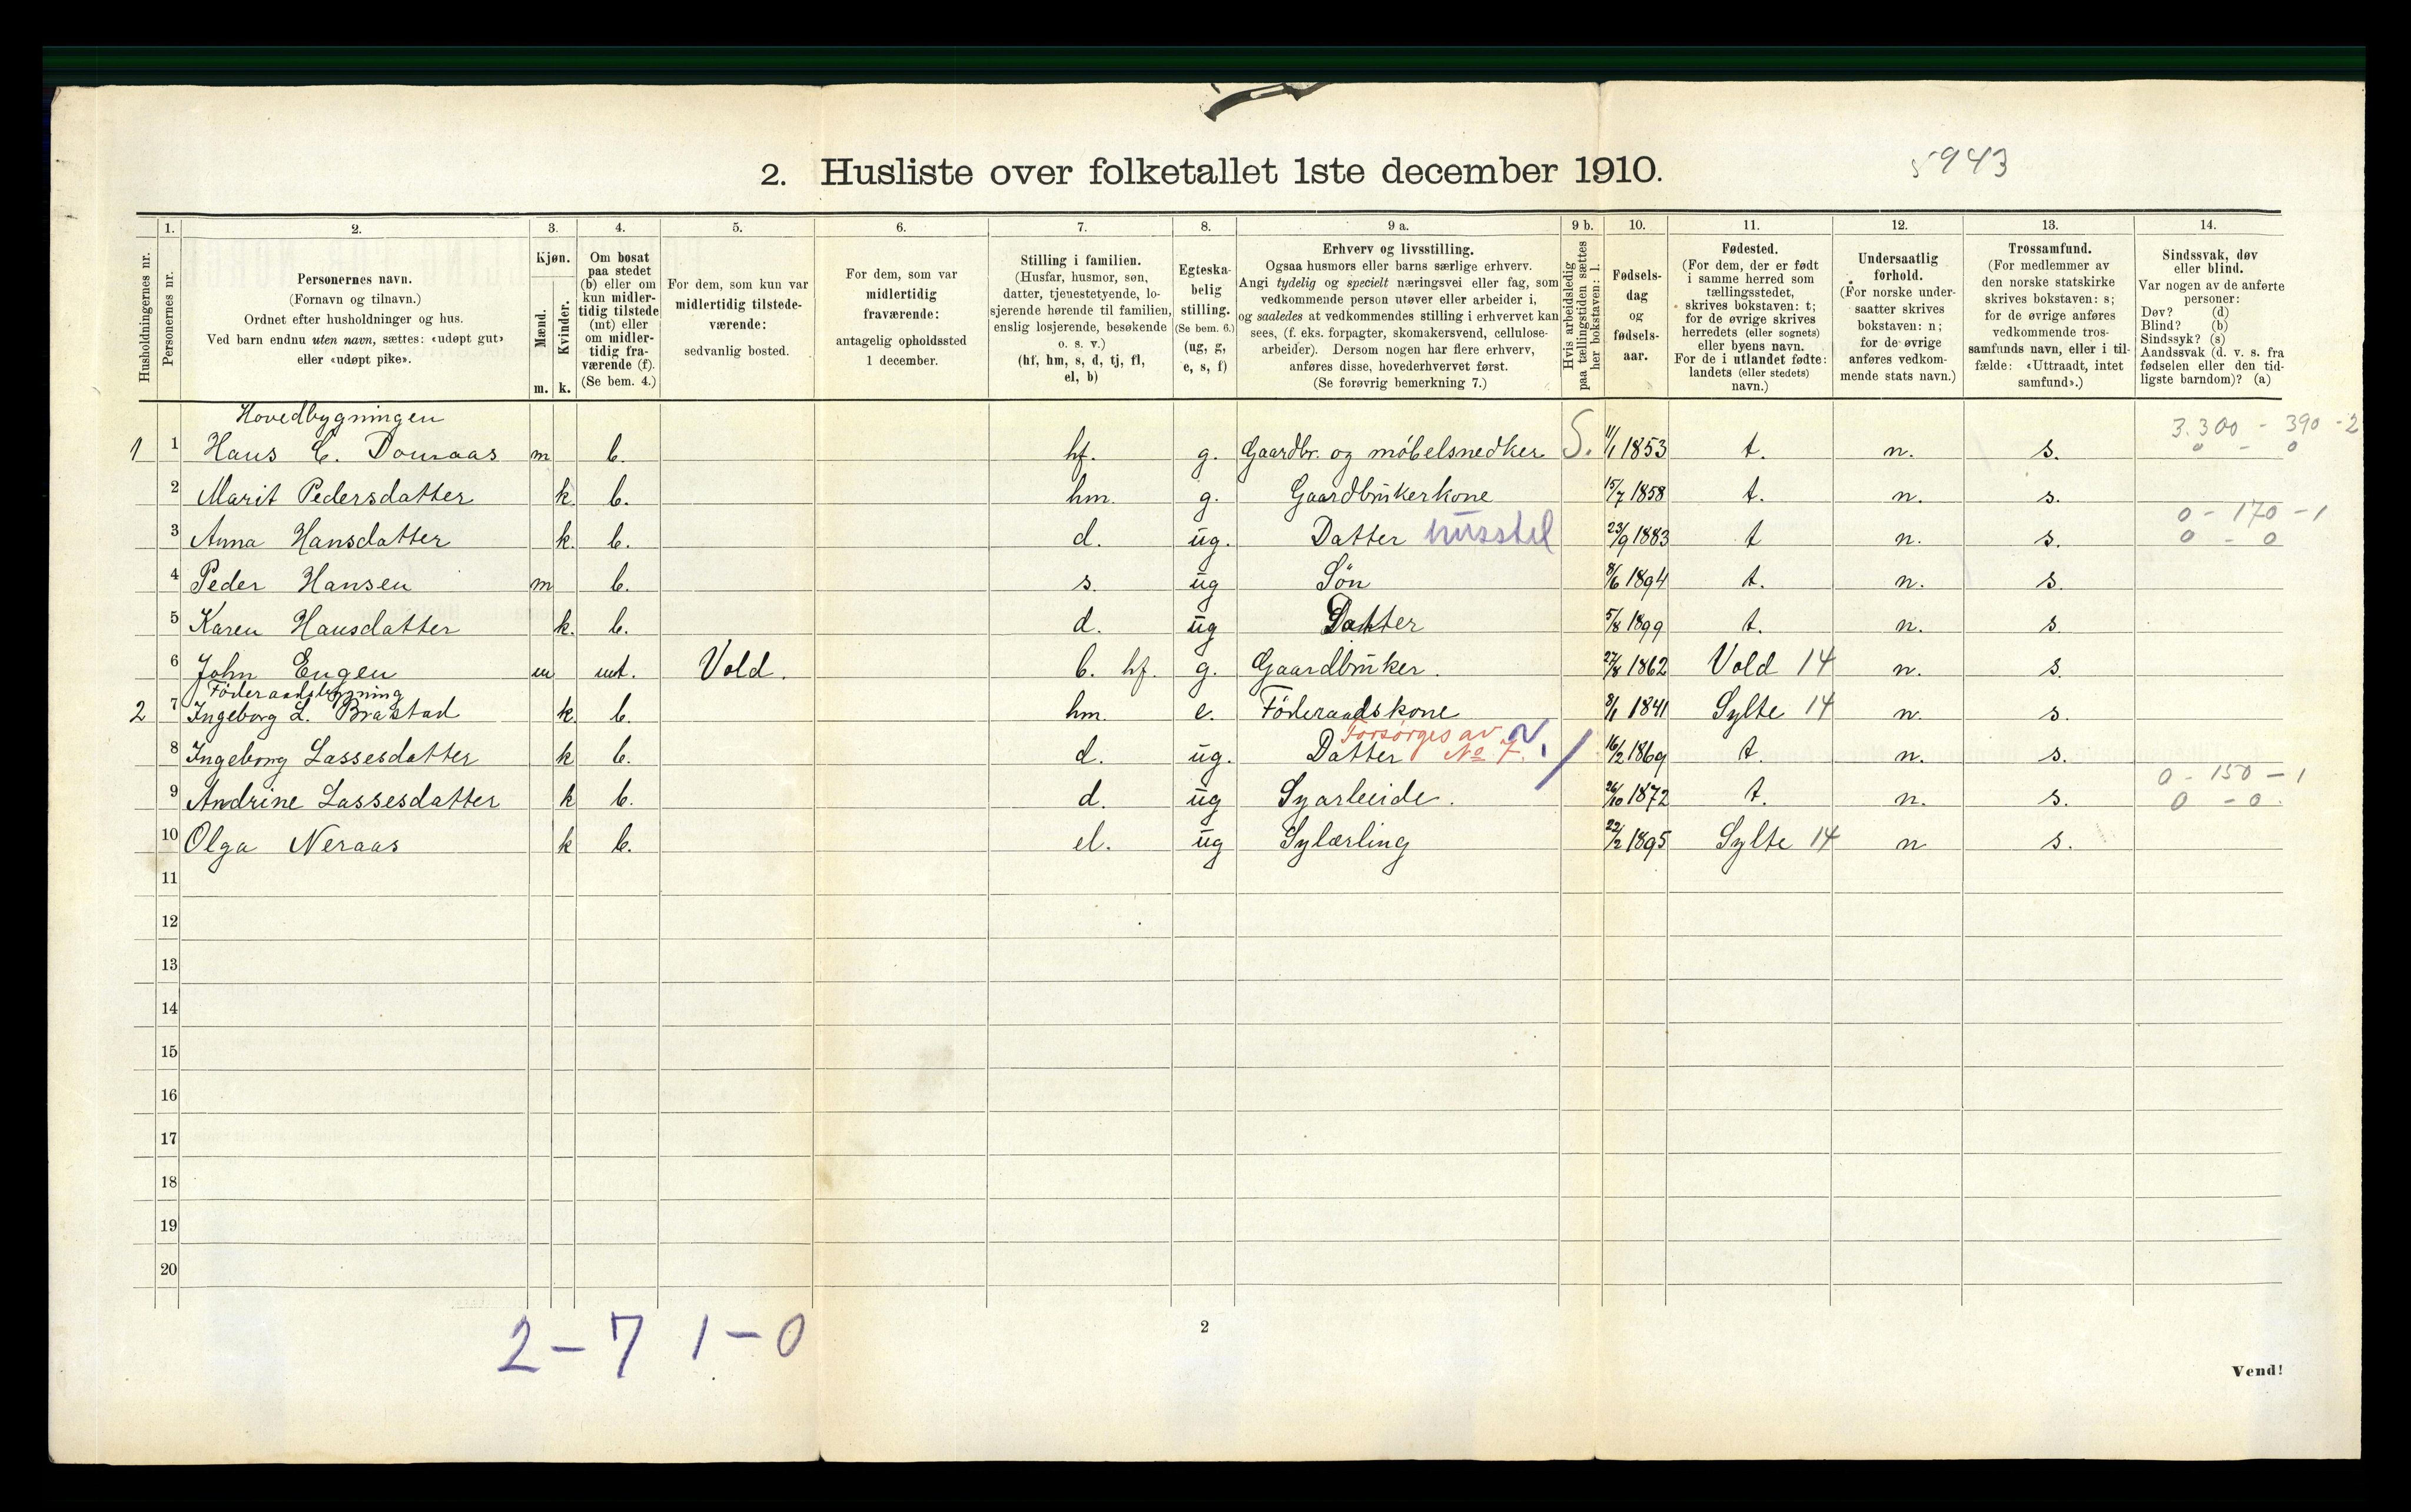 2. Husliste over folketallet 1ste december 1910.
5943
Husholdningernes nr.
1. Personernes nr.
2. Personernes navn.
(Fornavn og tilnavn.)
Ordnet efter husholdninger og hus.
Ved barn endnu uten navn, sættes: «udøpt gut»
eller «udøpt pike».
3. Kjøn.
Mænd. m.
Kvinder. k.
4. Om bosat
paa stedet
(b) eller om
kun midler-
tidig tilstede
(mt) eller
om midler-
tidig fra-
værende (f).
(Se bem. 4.)
5. For dem, som kun var
midlertidig tilstede-
værende:
sedvanlig bosted.
6. For dem, som var
midlertidig
fraværende:
antagelig opholdssted
1 december.
7. Stilling i familien.
(Husfar, husmor, søn,
datter, tjenestetyende, lo-
sjerende hørende til familien,
enslig losjerende, besøkende
o. s. v.)
(hf, hm, s, d, tj, fl,
el, b)
8. Egteska-
belig
stilling.
(Se bem. 6.)
(ug, g,
e, s, f)
9 a. Erhverv og livsstilling.
Ogsaa husmors eller barns særlige erhverv.
Angi tydelig og specielt næringsvei eller fag, som
vedkommende person utøver eller arbeider i,
og saaledes at vedkommendes stilling i erhvervet kan
sees, (f. eks. forpagter, skomakersvend, cellulose-
arbeider). Dersom nogen har flere erhverv,
anføres disse, hovederhvervet først.
(Se forøvrig bemerkning 7.)
9 b. Hvis arbeidsledig
paa tællingstiden sættes
her bokstaven: l.
10. Fødsels-
dag
og
fødsels-
aar.
11. Fødested.
(For dem, der er født
i samme herred som
tællingsstedet,
skrives bokstaven: t;
for de øvrige skrives
herredets (eller sognets)
eller byens navn.
For de i utlandet fødte:
landets (eller stedets)
navn.)
12. Undersaatlig
forhold.
(For norske under-
saatter skrives
bokstaven: n;
for de øvrige
anføres vedkom-
mende stats navn.)
13. Trossamfund.
(For medlemmer av
den norske statskirke
skrives bokstaven: s;
for de øvrige anføres
vedkommende tros-
samfunds navn, eller i til-
fælde: «Uttraadt, intet
samfund».)
14. Sindssvak, døv
eller blind.
Var nogen av de anførte
personer:
Døv? (d)
Blind? (b)
Sindssyk? (s)
Aandssvak (d. v. s. fra
fødselen eller den tid-
ligste barndom)? (a)
Hovedbygningen
3.300 - 390 - 2
1 1 Hans C. Domaas m b. hf. g. Gaardbr. og møbelsnedker S. 11/1 1853 t. n. s. 0 - 0
2 Marit Pedersdatter k b. hm. g. Gaardbrukerkone 15/7 1858 t. n. s.
0 - 170 - 1
3 Anna Hansdatter k. b. d. ug. Datter husstel 23/9 1883 t n. s. 0 - 0
4 Peder Hansen m b. s. ug Søn 8/6 1894 t. n. s.
5 Karen Hansdatter k. b. d. ug Datter 5/8 1899 t. n. s.
6 John Engen m mt. Vold. b. hf. g. Gaardbruker. 27/8 1862 Vold 14 n. s.
Föderaadsbygning
2 7 Ingeborg L. Brastad k. b. hm. e. Föderaadskone 8/1 1841 Sylte 14 n. s.
Forsørges av
8 Ingeborg Lassesdatter k b. d. ug. Datter No 7. 16/2 1869 t. n. s.
0 - 150 - 1
9 Andrine Lassesdatter k b. d. ug Syarbeide. 26/10 1872 t. n. s. 0 - 0.
10 Olga Neraas k b. el. ug Sylærling 22/2 1895 Sylte 14 n s.
11
12
13
14
15
16
17
18
19
20
2 - 7 1 - 0
2
Vend!